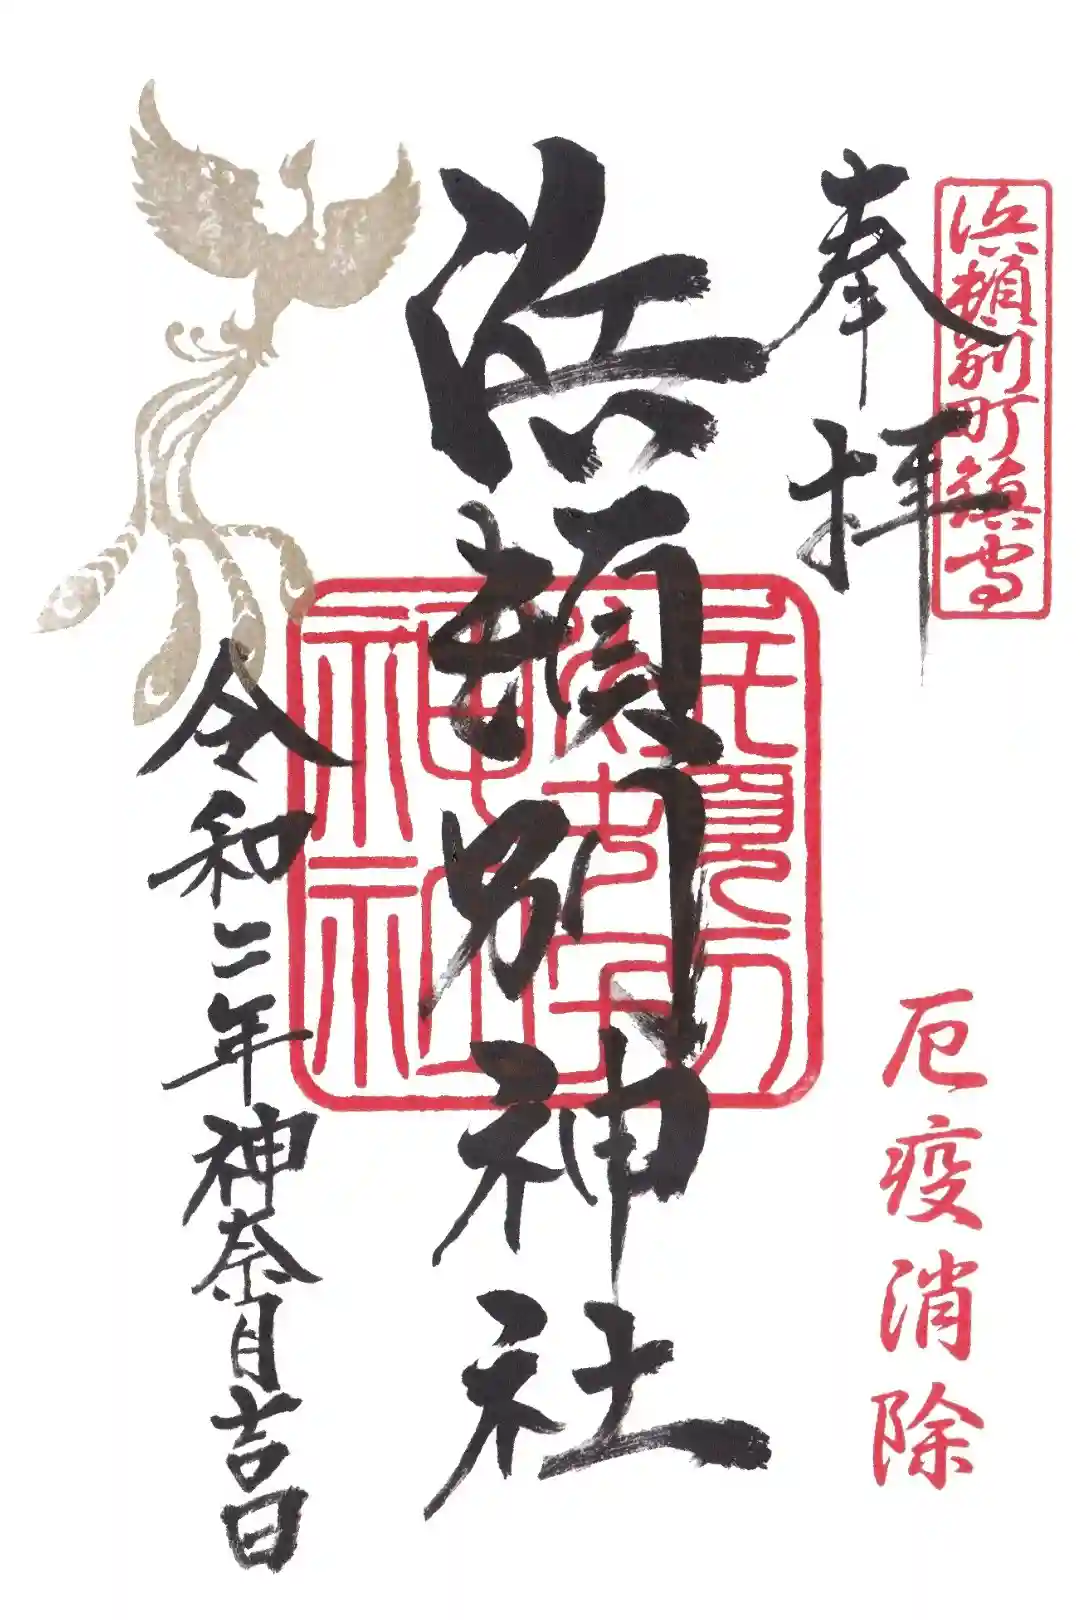 浜頓別町鎮守
奉拝
厄疫消除
浜頓別神社
令和二年神奈月吉日